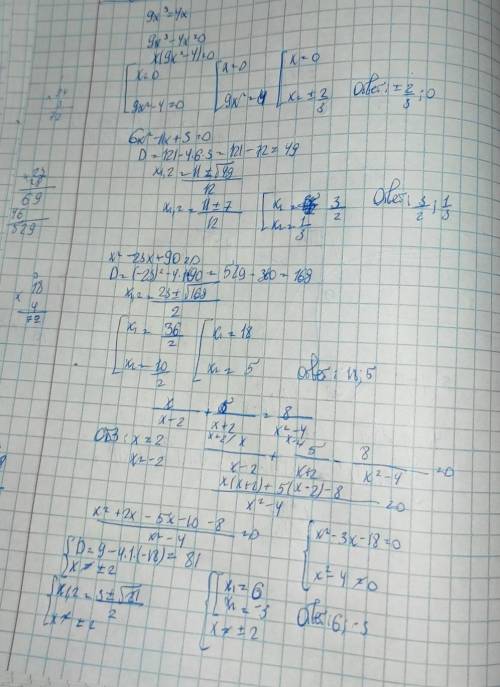 9x³=4x
9x³-4x=0
x(9x²-4)=0
[x=0 [x=0 [x=0
9x²-4=0 9x²=4 x=±2/3 Ответ: ±2/3; 0
6x²-11x+3=0
D=121-4·6·3=121-72=49
x₁,₂=(11±√49)/12
x₁,₂=(11±7)/12 [x₁= 3/2 x₂=1/3 Ответ: 3/2; 1/3
x²-23x+90=0
D=(-23)²-4·1·90=529-360=169
x₁,₂=(23±√169)/2
[x₁=36/2 [x₁=18
x₂=10/2 x₂=5 Ответ: 18; 5
x/(x-2) + 5/(x+2) = 8/(x²-4)
ОДЗ: x=2
x=-2
x/(x-2) + 5/(x+2) - 8/(x²-4) =0
(x(x+2)+5(x-2)-8)/(x²-4) =0
(x²+2x-5x-10-8)/(x²-4) =0 {x²-3x-18=0
x²-4≠0
{D=9-4·1·(-18)=81
x≠±2
{x₁,₂=(3±√81)/2 {[x₁=6
x₂=-3
x≠±2 x≠±2 Ответ: 6; -3
69
529
18
4
72